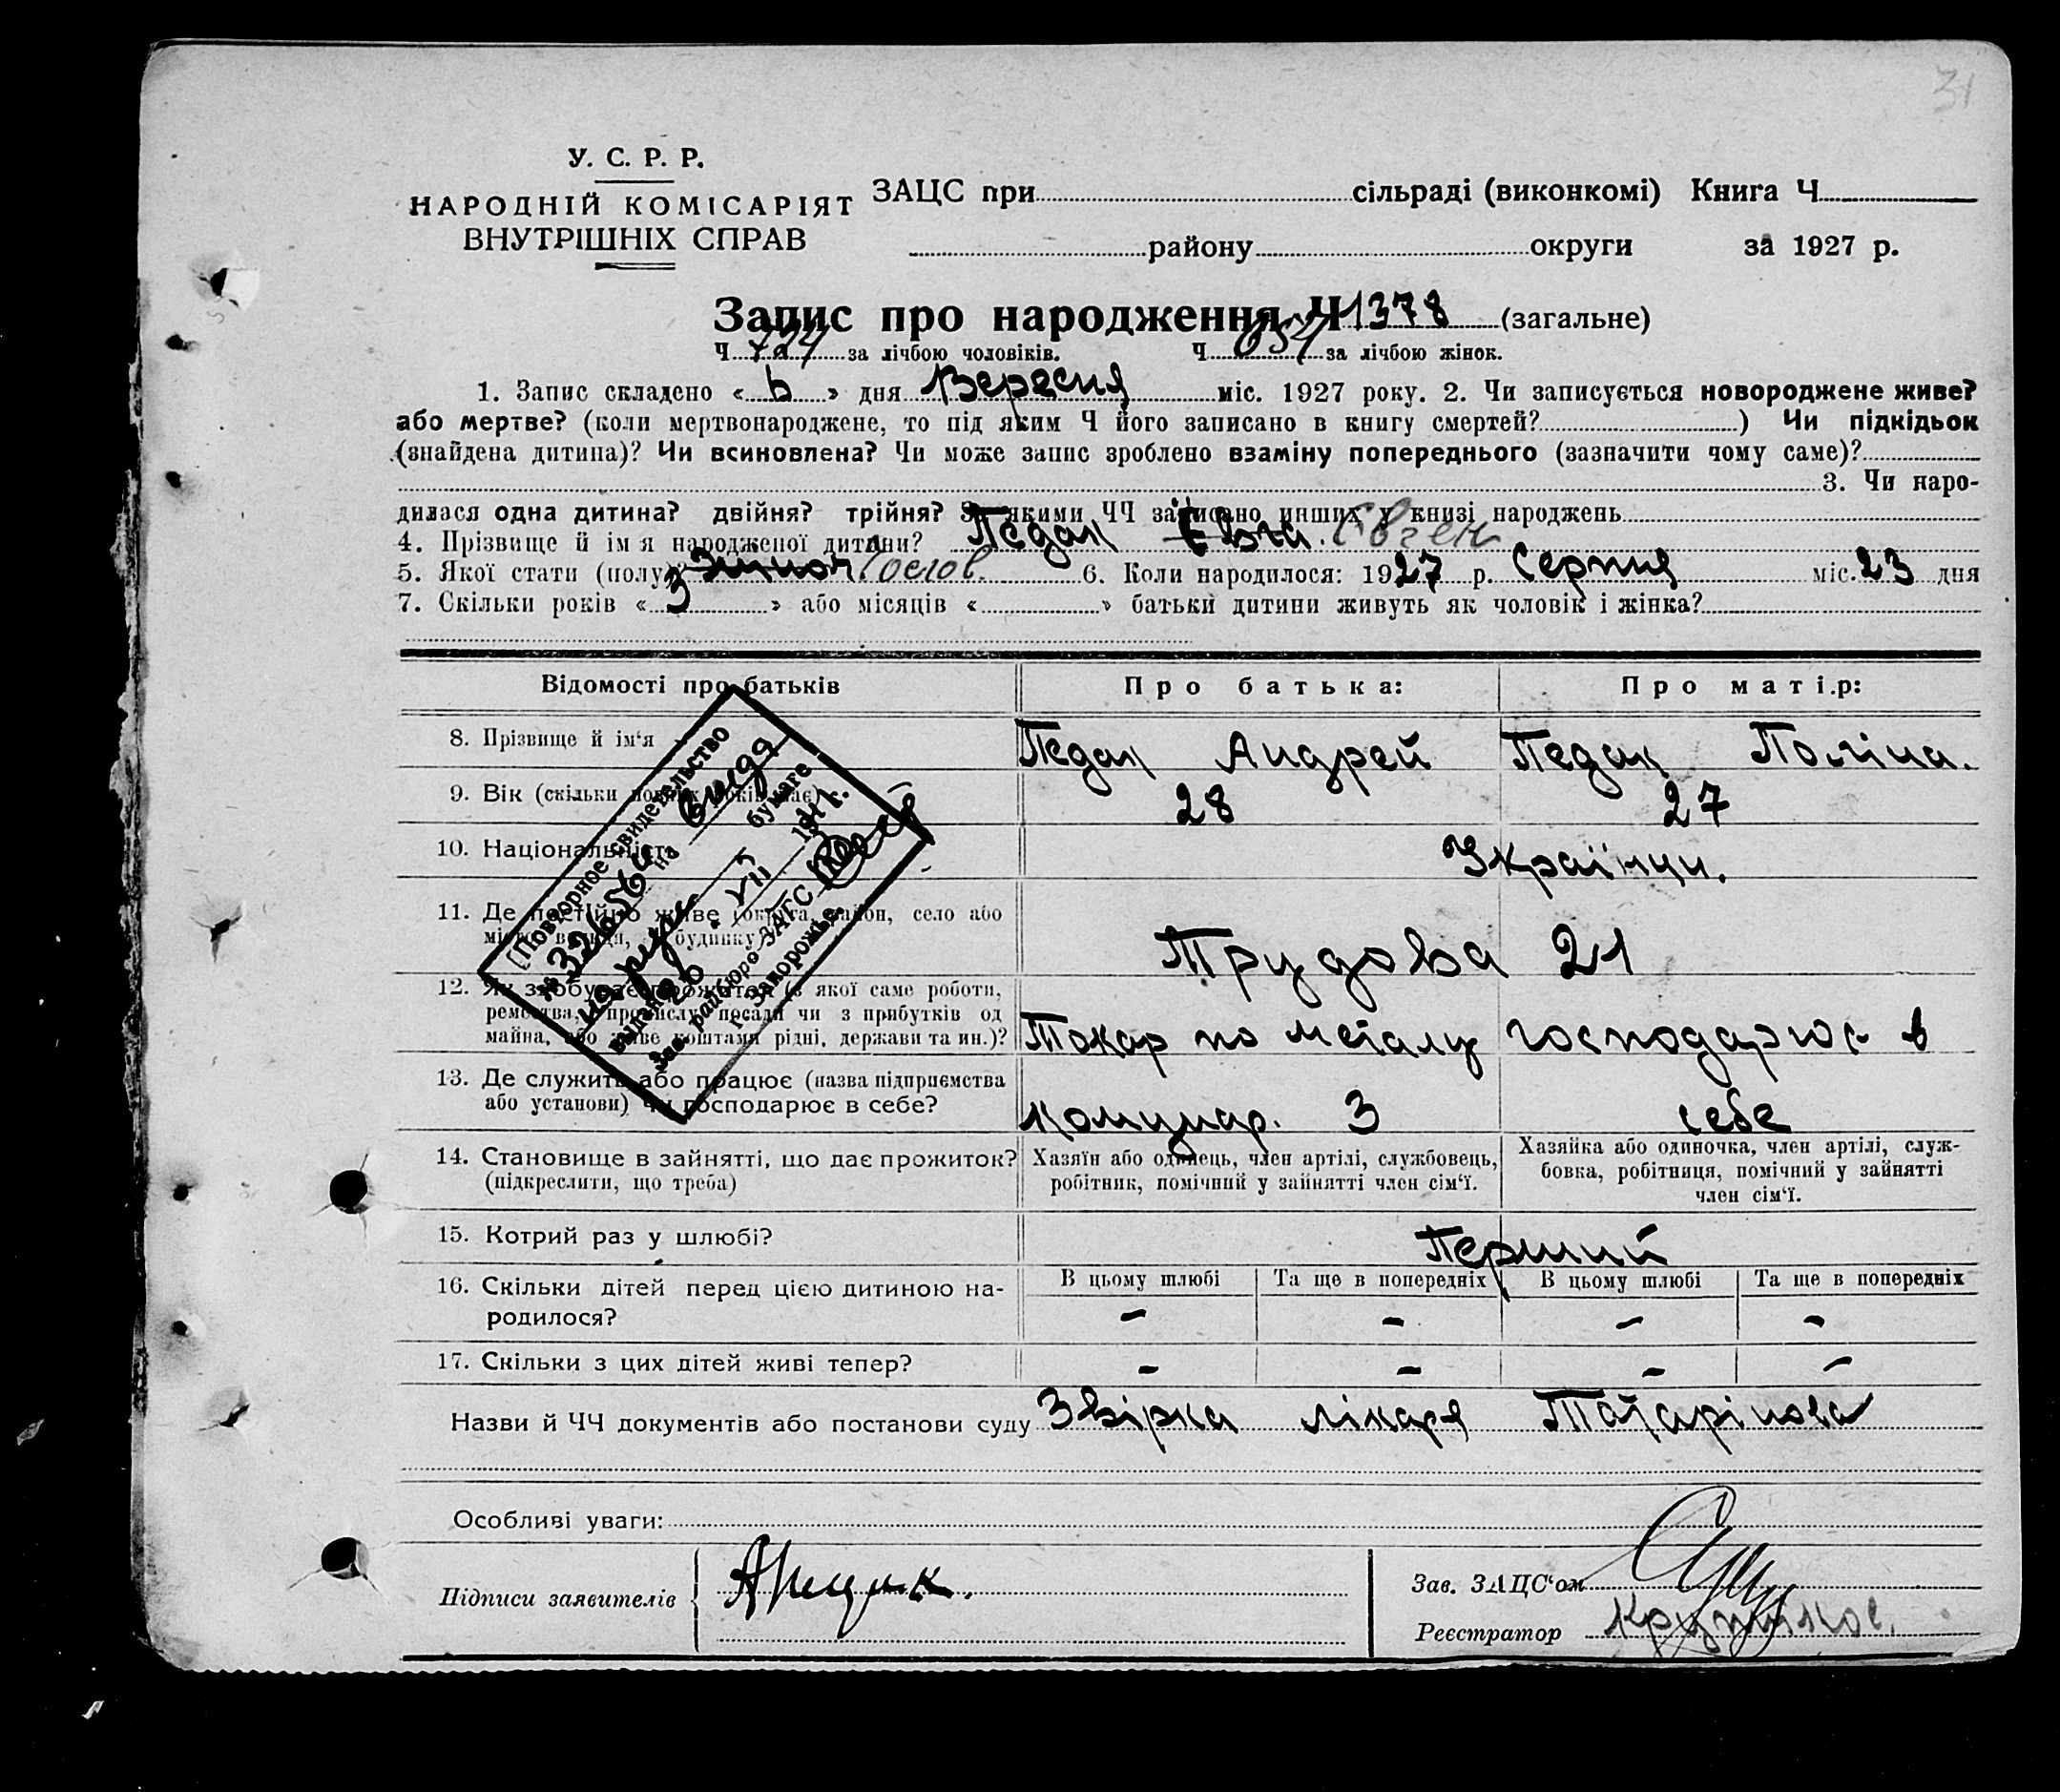 31
У. С. Р. Р.
НАРОДНІЙ КОМІСАРІЯТ
ВНУТРІШНІХ СПРАВ
ЗАЦС при сільраді (виконкомі) Книга Ч
району округи за 1927 р.
Запис про народження Ч 1378 (загальне)
Ч 724 за лічбою чоловіків. Ч 654 за лічбою жінок.
1. Запис складено « 6 » дня Вересня міс. 1927 року. 2. Чи записується новороджене живе?
або мертве? (коли мертвонароджене, то під яким Ч його записано в книгу смертей? ) Чи підкідьок
(знайдена дитина)? Чи всиновлена? Чи може запис зроблено взаміну попереднього (зазначити чому саме)?
3. Чи наро-
дилася одна дитина? двійня? трійня? З якими ЧЧ записано инших у книзі народжень
4. Прізвище й ім'я народженої дитини? Педак Євген
5. Якої стати (полу)? жіноч. 6. Коли народилося: 1927 р. Серпня міс. 23 дня
7. Скільки років « 3 » або місяців « » батьки дитини живуть як чоловік і жінка?
Відомості про батьків
Про батька:
Про матір:
8. Прізвище й ім'я
Педак Андрей
Педак Поліна.
9. Вік (скільки повних років має)
28
27
10. Національність
Українци.
11. Де постійно живе (округа, район, село або
місто, вулиця, ч. будинку)
Трудова 21
12. Як здобуває прожиток (з якої саме роботи,
ремества, промислу, посади чи з прибутків од
майна, або живе коштами рідні, держави та ин.)?
Токар по металу
господарює в
13. Де служить або працює (назва підприємства
або установи) чи господарює в себе?
Комунар. 3
себе
14. Становище в зайнятті, що дає прожиток?
(підкреслити, що треба)
Хазяїн або одинець, член артілі, службовець,
робітник, помічний у зайнятті член сім'ї.
Хазяйка або одиночка, член артілі, служ-
бовка, робітниця, помічний у зайнятті
член сім'ї.
15. Котрий раз у шлюбі?
Перший
16. Скільки дітей перед цією дитиною на-
родилося?
В цьому шлюбі
Та ще в попередніх
В цьому шлюбі
Та ще в попередніх
– – – –
17. Скільки з цих дітей живі тепер?
– – – –
Назви й ЧЧ документів або постанови суду Звірка лікаря Татарінова
Особливі уваги:
Підписи заявителів
Зав. ЗАЦС'ом
Реєстратор
Повторное свидетельство
№ 326566 на
бумаге
выдано 20 VII 194
Зав. райбюро ЗАГС
г. Запорожье